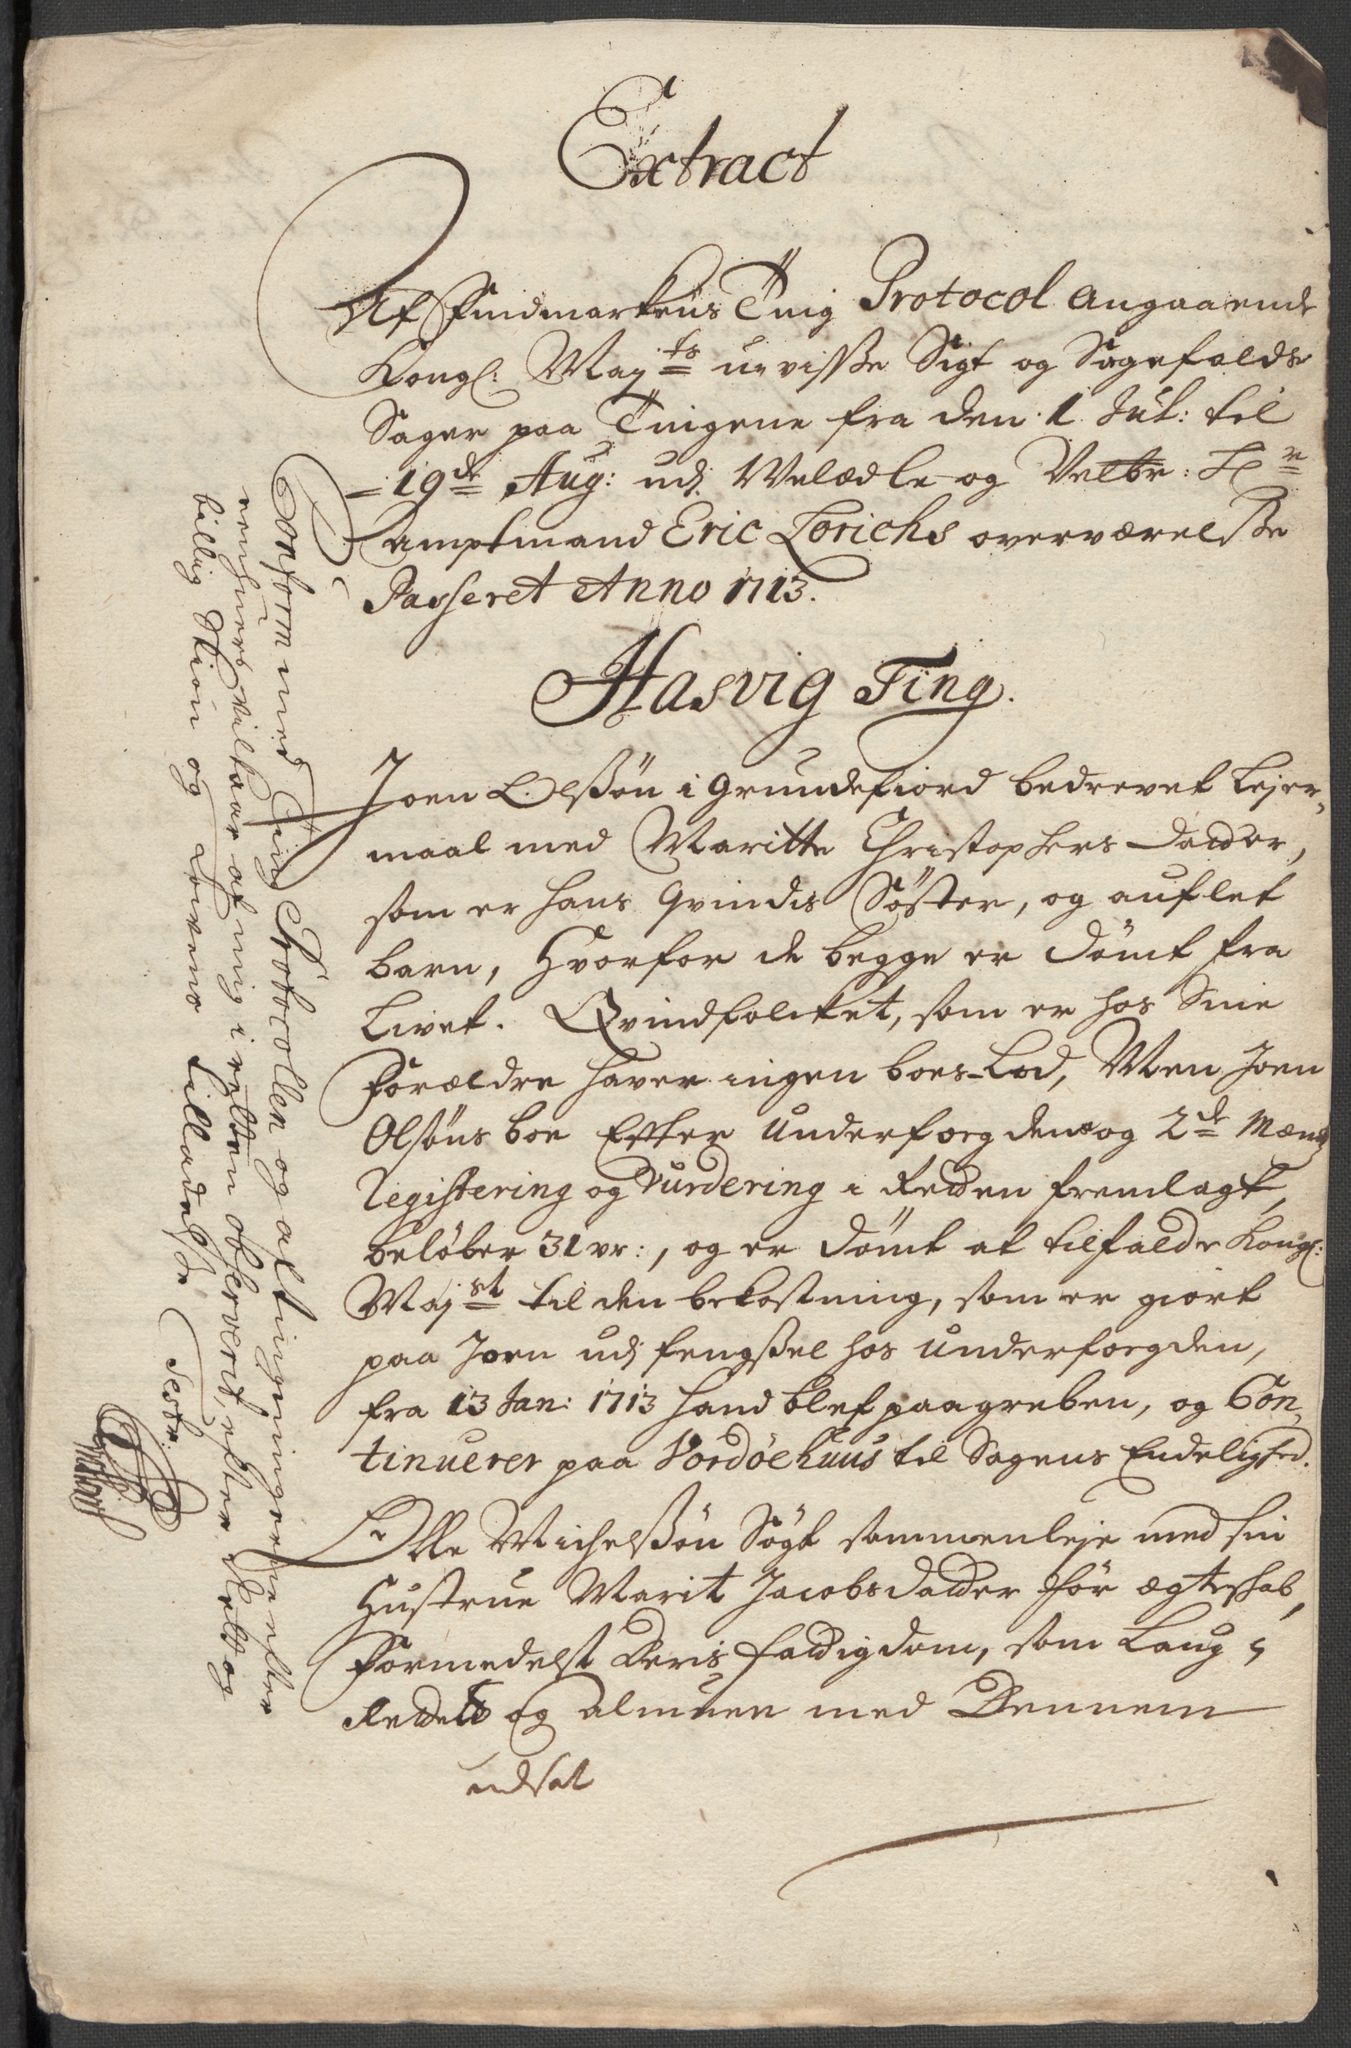 Extract
Af Findmarkens Ting Protocol angaaende
Kongl: Maj.ts uvisse Sigt og Sagefalds
Sager paa Tingene fra den 1 Jul: til
19de Aug: udj Velædle og Velbr: Hr.
Amptmand Eric Lorichs overværelsse
Passeret Anno 1713.
Hasvig Ting.
Joen Olssøn i Grundefiord bedrevet Lejer-
maal med Maritte Christophers Daatter,
som er hans Qvindis Søster, og auflet
barn, Hvorfor de begge er Dömt fra
Livet. Qvindfolcket, som er hos Sine
Forældre haver ingen boes-Lod, Men Joen
Olsøns boe Efter Underfogden og 2de Mænds
Registering og Vurdering i Retten fremlagt,
beløber 31 vr:, og er Dömt at tilfalde Kongl:
Majst til den bekostning, som er giort
paa Joen udj fengssel hos Underfogden,
fra 13 Jan: 1713 hand blef paagreben, og Con-
tinuerer paa Vordøehuus til Sagens Endelighed.
Olle Michelssön Søgt sammenleje med sin
Hustrue Marit Jacobsdatter før ægteskab,
Formedelst Deris fattigdom, som Laug-
Rettet og Almuen med Dennem
udsat
Conform med Ting Protocollen og aftingningerne efter
eenhuers vilkaar af mig i retten observerit, efter Rett og
billig Skiøn og Lovens tilladelse Test: